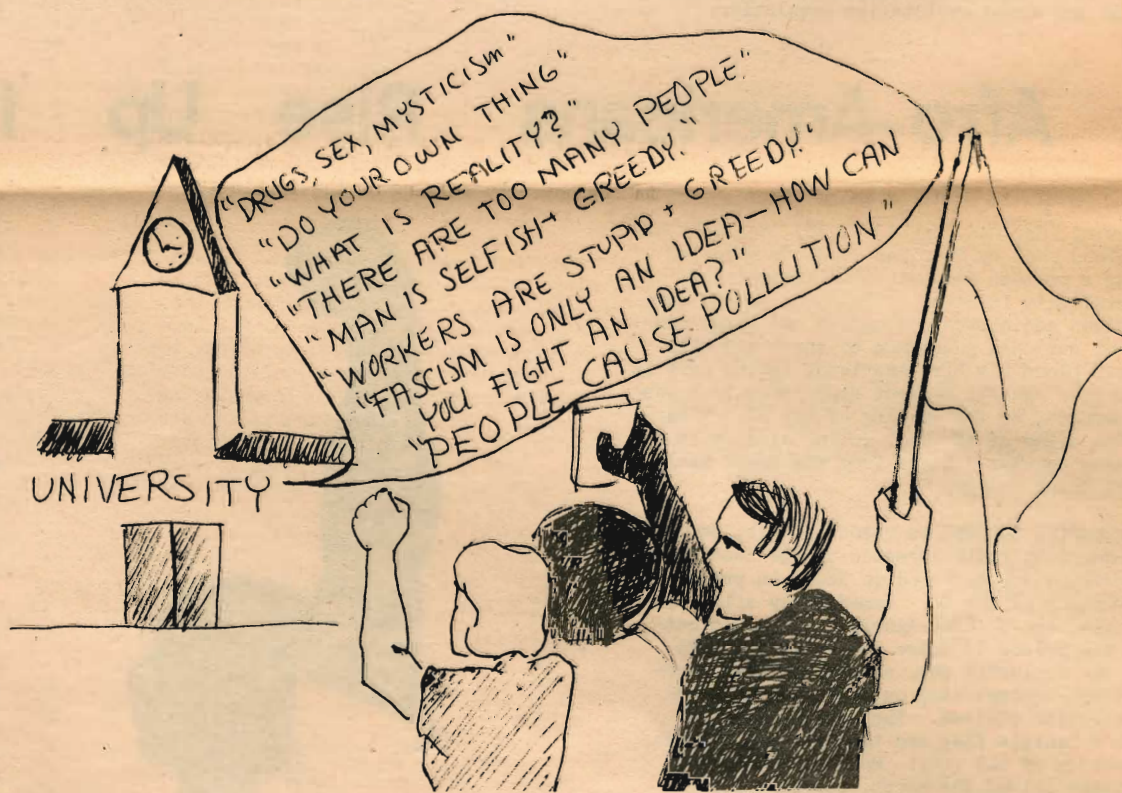 "DRUGS, SEX, MYSTICISM"
"DO YOUR OWN THING"
"WHAT IS REALITY?"
"THERE ARE TOO MANY PEOPLE."
"MAN IS SELFISH + GREEDY."
"WORKERS ARE STUPID + GREEDY."
"FASCISM IS ONLY AN IDEA—HOW CAN
YOU FIGHT AN IDEA?"
"PEOPLE CAUSE POLLUTION"
UNIVERSITY